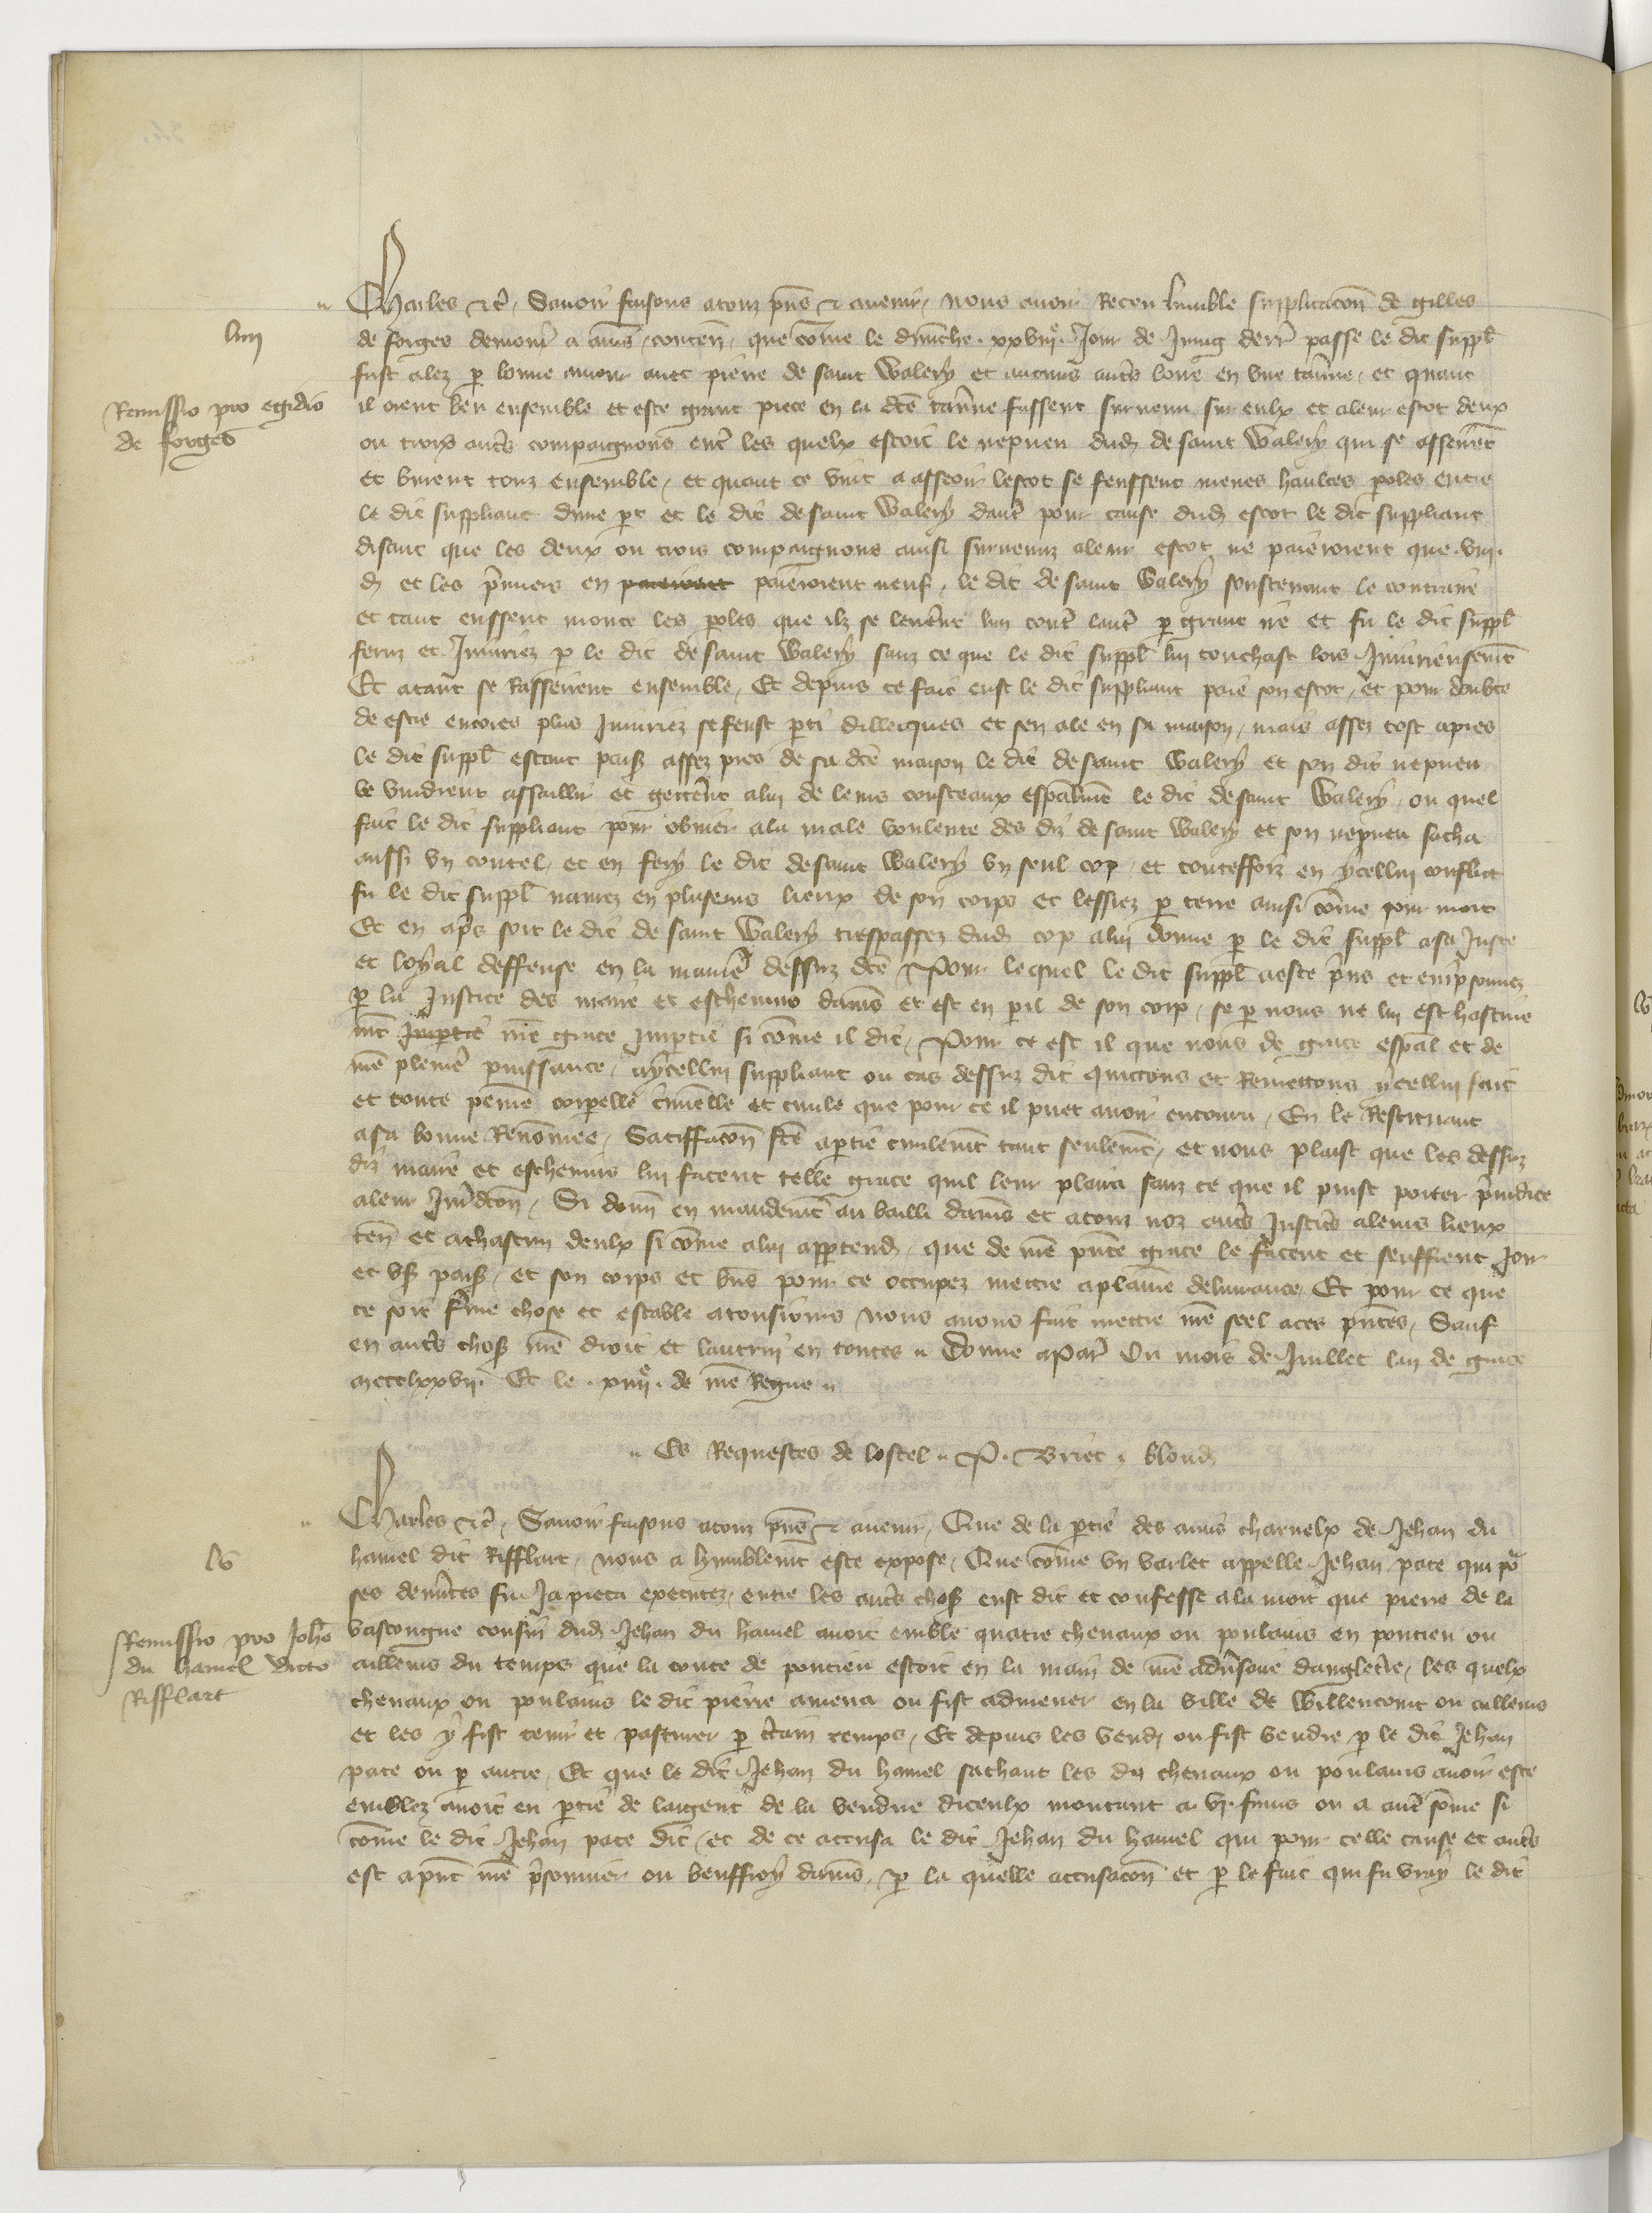 Charles etc. Savoir faisons a touz pns et avenir, nous avoir Receu lumble supplicacon de gilles
liiij
de forges demour a amis, conten, que come le dimenche xxviije Jour de Juing derr passe le dit suppl
fust alez p bonne amour avec pierre de saint Walery et aucuns auts boire en une taverne, et quant
Remissio pro egidio
de forges
il orent beu ensemble et este grant piece en la dce taverne fussent survenu sur eulx et a leur escot deux
ou trois auts compaignons ent les quelx estoit le nepveu dud de saint Walery qui se assemblerent
et burent touz ensemble, et quant ce vint a asseoir lescot se feussent meues haultes poles entre
le dit suppliant dune pt et le dit de saint Walery daut pour cause dud escot le dit suppliant
disant que les deux ou trois compaignons ainsi survenuz a leur escot ne paieroient que viij
d et les pmiers en paieroient paieroient neuf, le dit de saint Walery soustenant le contraire
et tant eussent monte les poles que ilz se leverent lun cont laut p grant ire et fu le dit suppl
feruz et Iniuriez p le dit de saint Walery sanz ce que le dit suppl lui touchast lors Iniurieusemt
Et atant se Rassirent ensemble, Et depuis ce fait eust le dit suppliant paie son escot, et pour doubte
de estre encores plus Iniuriez se feust pti dillecques et sen ale en sa maison, mais assez tost apres
le dit suppl estant paisib assez pres de sa dce maison le dit de saint Walery et son dit nepveu
le vindrent assaillir et getterent a lui de leurs cousteaux espalmt le dit de saint Walery, ou quel
fait le dit suppliant pour obvier a la male voulente des diz de saint Walery et son nepveu sacha
aussi un coutel, et en fery le dit de saint Walery un seul cop, et touteffoiz en ycellui conflict
fu le dit suppl navrez en pluseurs lieux de son corps et lessiez p terre ainsi come pour mort
Et en aps soit le dit de saint Walery trespassez dud cop a lui donne p le dit suppl a sa Juste
et loyal deffense en la manie dessuz dce Pour lequel le dit suppl a este pris et empsonnez
p la Justice des maire et eschevins damis et est en pil de son corp, se p nous ne lui est hastive
mt Impartie nre grace Impartie si come il dit, Pour ce est il que nous de grace espal et de
nre pleniere puissance, a ycellui suppliant ou cas dessuz dit quittons et Remettons ycellui fait
et toute peine corpelle criminelle et civile que pour ce il puet avoir encouru, En le Restituant
a sa bonne Renommee, Satiffacon fce a ptie civilemt tant seulemt, et nous plaist que les dessuz
diz maire et eschevins lui facent telle grace quil leur plaira sanz ce que il puist porter preiudice
a leur Jurdicon, Si donn en mandemt au bailli damis et a touz noz auts Justiciers a leurs lieux
ten et a chascun deulx si come a lui apptend, que de nre pnte grace le facent et seuffrent Joir
et us paisib, et son corps et biens pour ce occupez mettre a plaine delivrance Et pour ce que
ce soit ferme chose et estable a tousiours Nous avons fait mettre nre seel a ces pntes, Sauf
en auts chos nre droit et lautrui en toutes Donne a Par Ou mois de Juillet lan de grace
mccclxxvij Et le xiiije de nre Regne
Es Requestes de lostel P. Briet Blond
Charles etc, Savoir faisons a touz pns et avenir, Que de la ptie des amis charnelx de Jehan du
lv
hamel dit Rifflart, nous a humblemt este expose, Que come un varlet appelle Jehan pate qui po
ses demerites fu Ja pieca executez, entre les auts chos eust dit et confesse a la mort que pierre de la
Remissio pro Johe
du hamel dicto
Rifflart
vascongne cousin dud Jehan du hamel avoit emble quatre chevaux ou poulains en pontieu ou
ailleurs du temps que la conte de pontieu estoit en la main de nre adversaire dangleterre, les quelx
chevaux ou poulains le dit pierre amena ou fist admener en la ville de Willencourt ou ailleurs
et les y fist tenir et pasturer p ctain temps, Et depuis les vendi ou fist vendre p le dit Jehan
pate ou p autre, Et que le dit Jehan du hamel sachant les diz chevaux ou poulains avoir este
emblez avoit eu ptie de largent de la vendue diceulx montant a vj frans ou a aut some si
come le dit Jehan pate dit, et de ce accusa le dit Jehan du hamel qui pour celle cause et auts
est a pnt nre psonnier ou beuffroy damis, p la quelle accusacon et p le fait qui fu vray le dit